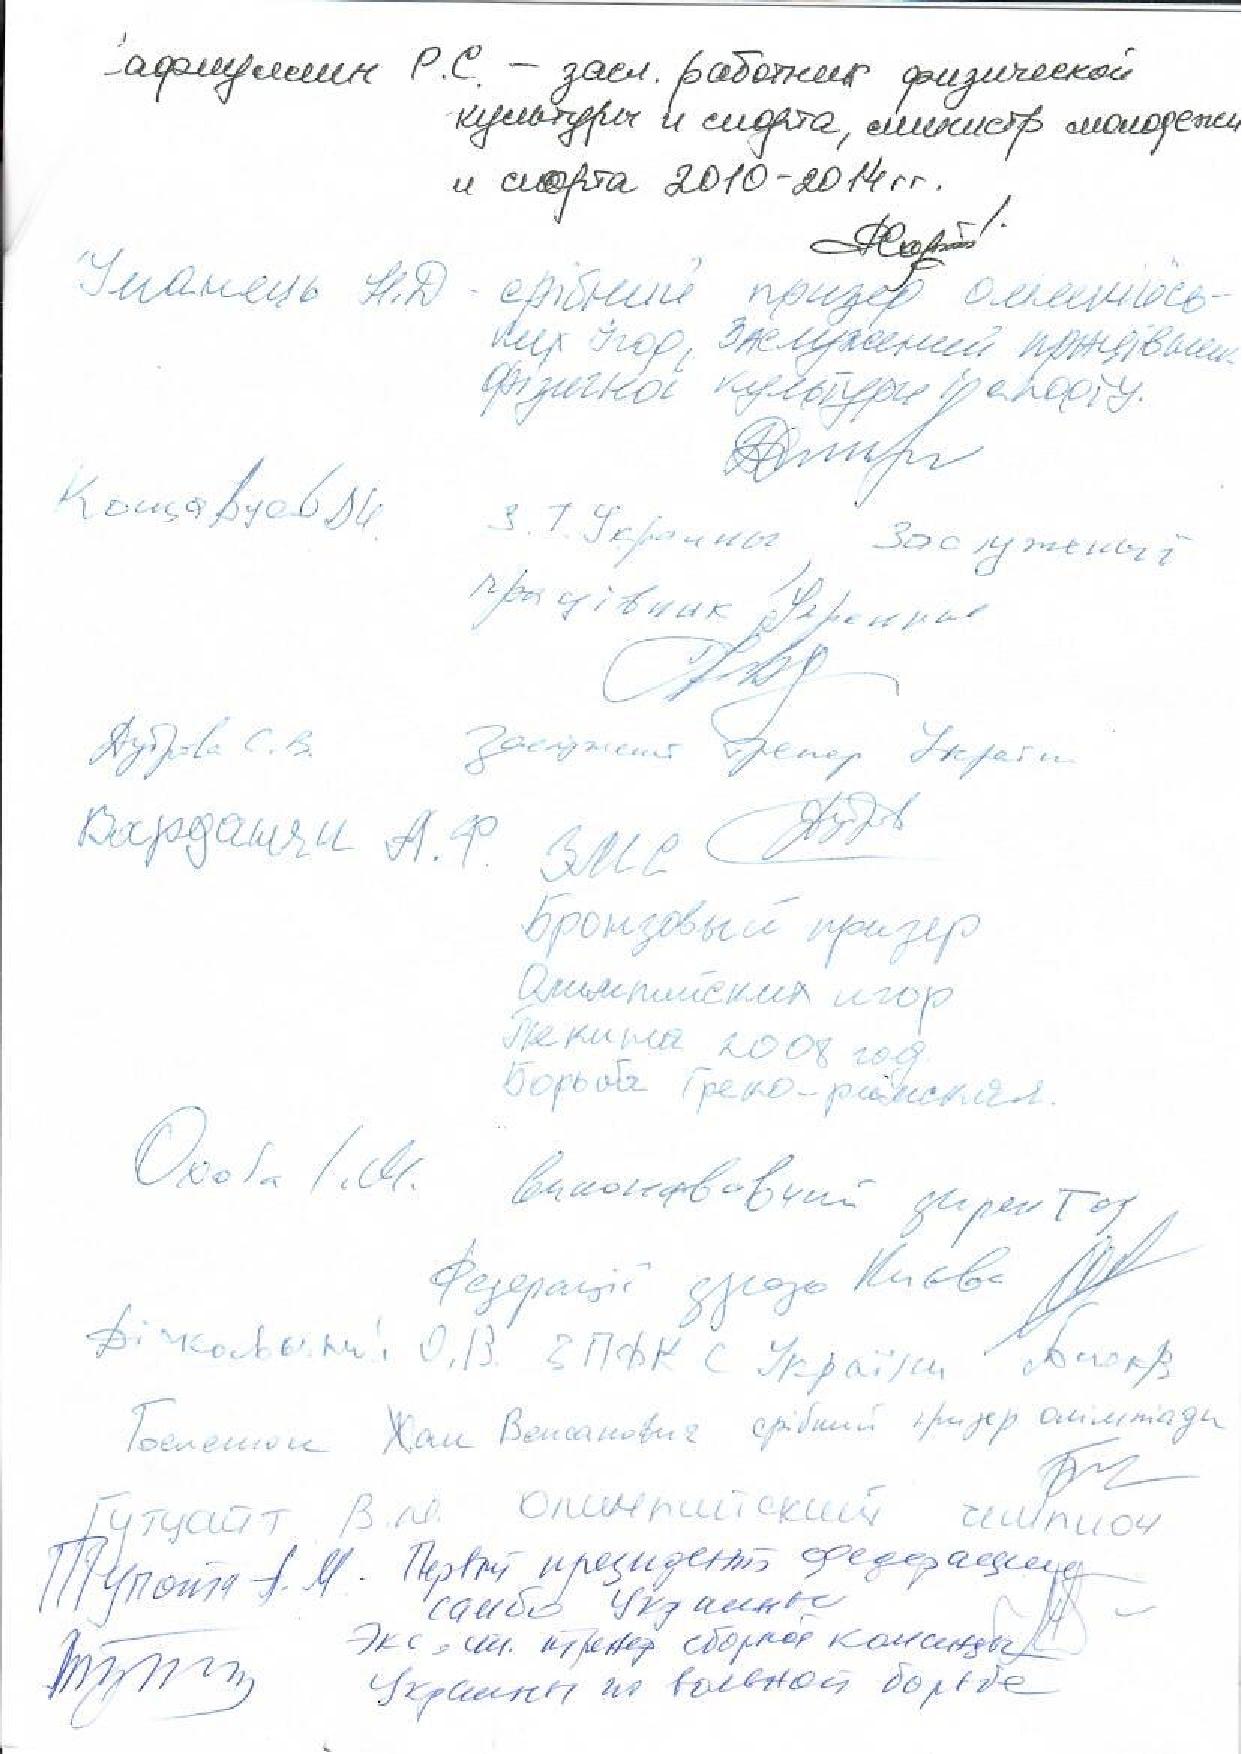 Сафиуллин Р.С. – засл. работник физической
культуры и спорта, министр молодежи
и спорта 2010-2014 гг.
Уманець М.Д - срібний призер олимпійсь-
ких Ігор, Заслужений працівник
фізичної культури і спорту.
З.Т. Украины Заслуженый
працівник Украины
С.В. Заслужений тренер України
Варданян А.Ф. ЗМС
Бронзовый призер
Олимпийских игор
Пекина 2008 год.
Борьба Греко-римская.
І.М. виконавчий директор
Федерації дзюдо Києва
О.В. ЗПФК С України
Беленюк Жан Венсанович срібний призер олімпіади
Гутцайт В.М. Олимпийский чемпион
Первый президент Федерации
самбо Украины
Экс. ст. тренер сборной команды
Украины по вольной борьбе